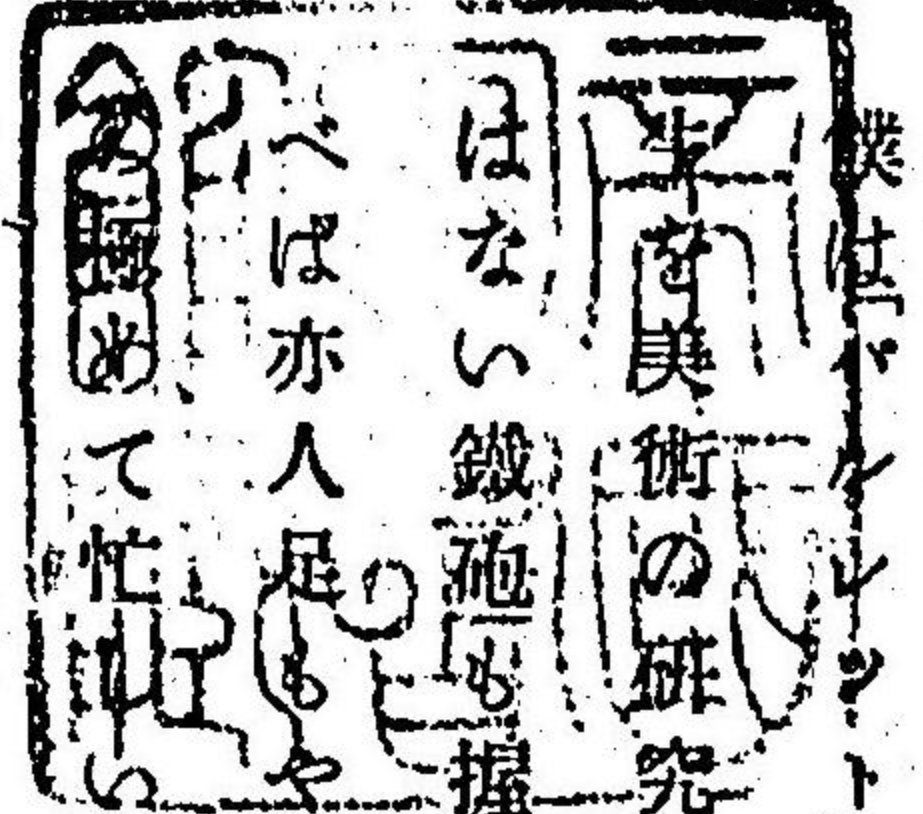 僕は「バルレット
生を美術の研究
はない鐵砲も握
べば亦人足もや
め極めて忙しい